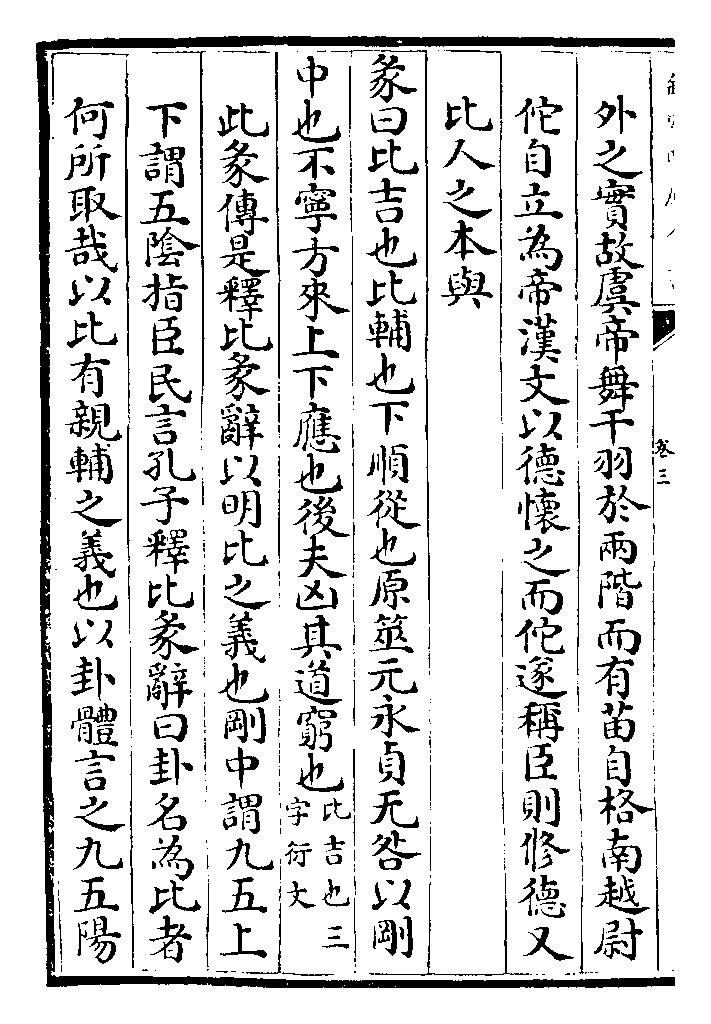 外之實故虞帝舞干羽於兩階而有苗自格南越尉
佗自立為帝漢文以德懷之而佗遂稱臣則修德又
比人之本與
彖曰比吉也比輔也下順從也原筮元永貞无咎以剛
中也不寧方來上下應也後夫凶其道窮也比吉也三字衍文
此彖傳是釋比彖辭以明比之義也剛中謂九五上
下謂五陰指臣民言孔子釋比彖辭曰卦名為比者
何所取哉以比有親輔之義也以卦體言之九五陽
卷三